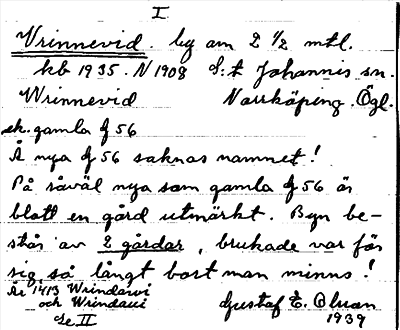 I
Vrinnevid. by om 2 ½ mtl.
kb 1935. N 1908 S:t Johannis sn.
Wrinnevid Norrköping. Ögl.
ek. gamla df 56
Å nya df 56 saknas namnet!
På såväl nya som gamla df 56 är
blott en gård utmärkt. Byn be-
står av 2 gårdar, brukade var för
sig så långt bort man minns!
År 1413 Wrindawi
och Wrindaui Gustaf E. Bluan
Se II 1939